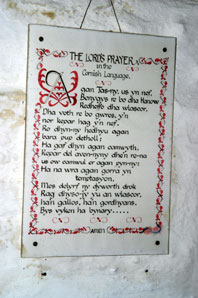 THE LORD'S PRAYER
in the
Cornish Language.
Agan Tas-ny, us yn nef,
Benygys re bo dha Hanow
Re dheffo dha wlascor,
Dha voth re bo gwres, y'n
nor kepar hag y'n nef.
Ro dhyn-ny hedhyu agan
bara pup dedh oll:
Ha gaf dhyn agan camwyth,
Kepar del avon-ny dhe'n re-na
us ow camwul er agan pyn-ny:
Ha na wra agan gorra yn
temptasyon,
Mes delyrf ny dyworth drok
Rag dhyso-jy yu an wlascor,
ha'n gallos, ha'n gordhyans,
Bys vyken ha bynary.....
AMEN